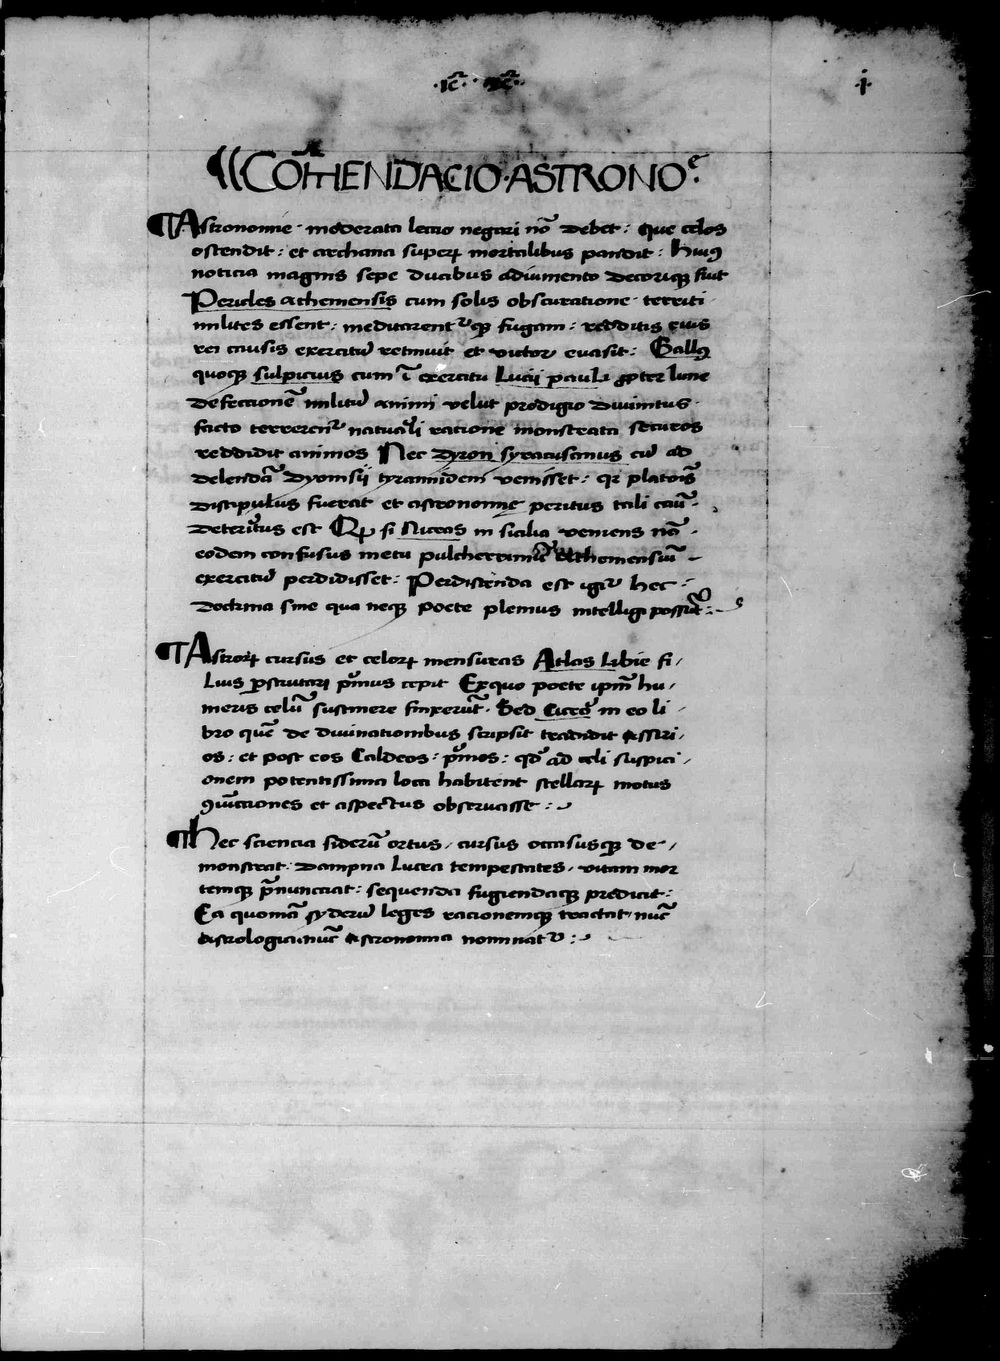 ·i·
COM̄ENDACIO·ASTRONOᵉ:
Astronomie · moderata lectio negari nō debet : Que celos
ostendit : et archana superꝝ mortalibus pandit : Huiꝰ
noticia magnis sepe ducibus adiumento decoriqꝫ fuit
Pericles athemensis cum solis obscuratione · territi
milites essent : meditarentᷣqꝫ fugam : redditis eius
rei causis exercitū retinuit et victor euasit : Gallꝰ
quoqꝫ sulpicius cum ī exercitu Lucii pauli ꝓpter lune
defectionē militū animi velut prodigio diuinitus ·
facto terrerentᷣ naturali ratione monstrata securos
reddidit animos Nec dyron syracusanus cū ad
delendā dyonisii tyrannidem venisset : qr platonis
discipulus fuerat et astronomie peritus tali causa ·
deteritus est Qꝫ si Niceas in sicilia veniens nō ·
eodem confusus metu pulcherrimū athemensiū –
exercitū perdidisset : Perdiscenda est igiᷣ hec :
doctrina sine qua neqꝫ poete plenius intelligi possūt :
Astroꝝ cursus et celoꝝ mensuras Atlas Libie fi /
lius ꝑscrutari pͥmus cepit Exquo poete ipm̄ hu /
meris celū sustinere finxerūt · Sed Cicero in eo li /
bro quē de diuinationibus scripsit tradidit Assiri /
os : et post eos Caldeos : pͥmos : qd̄ ad celi suspici /
onem potentissima loca habitent stellaꝝ motus
ꝯiūctiones et aspectus obseruasse :
Hec sciencia siderū ortus / cursus occasusqꝫ de /
monstrat : Dampna Lucra tempestates · vitam mor
temqꝫ p̄nunciat : sequenda fugiendaqꝫ predicit :
Ea quoniā syderū leges racionemqꝫ tractat nūc
Astrologia : nūc Astronomia nominatᷣ :